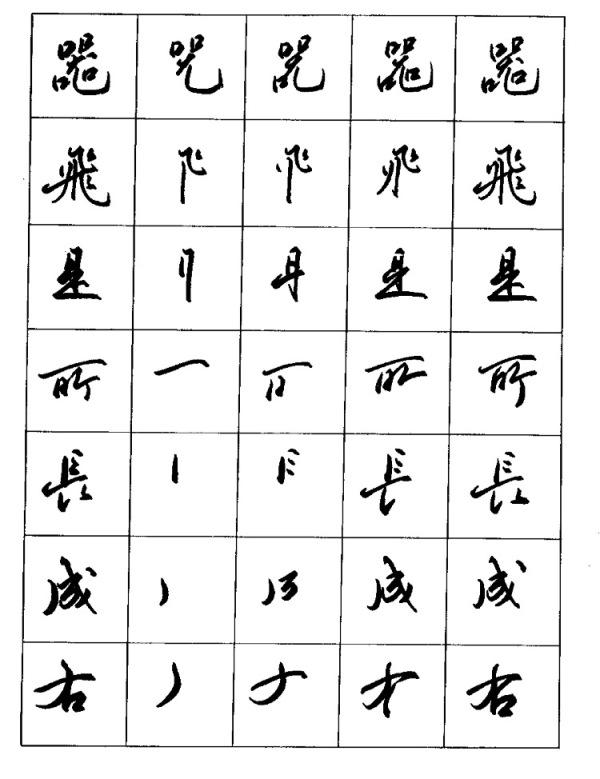 器 器
飛 飛
是 是
所 所
長 長
成 成
右 右